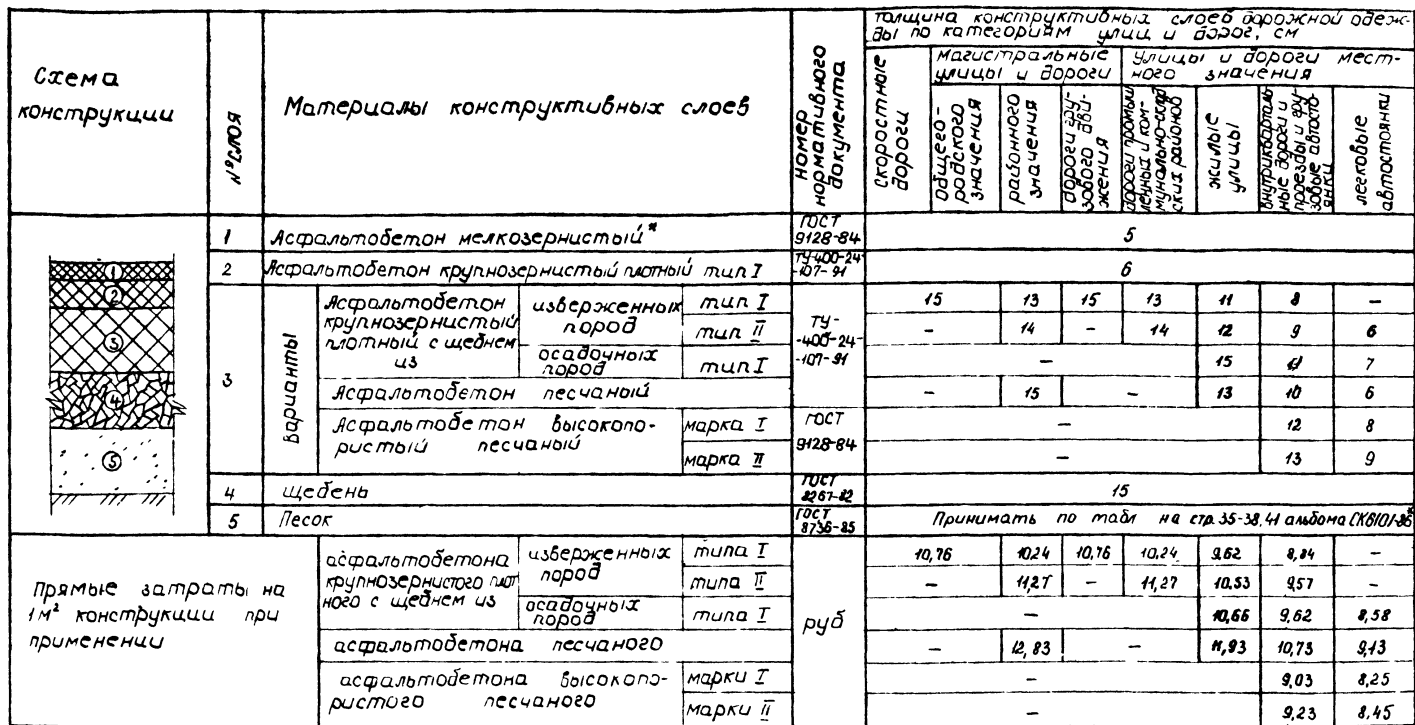 Схема конструкции
№ слоя
Материалы конструктивных слоев
Номер нормативного документа
Толщина конструктивных слоев дорожной одеж-
ды по категориям улиц и дорог, см
Скоростные дороги
Магистральные улицы и дороги
Улицы и дороги мест-
ного значения
общего-
родского значения
районного значения
дороги гру-
зового дви-
жения
дороги промыш
ленных и ком-
мунально-склад
ских районов
жилые улицы
внутрикварталь
ные дороги и
проезды и гру-
зовые автосто-
янки
легковые автостоянки
1 Асфальтобетон мелкозернистый* ГОСТ 9128-84 5
2 Асфальтобетон крупнозернистый плотный тип I ТУ-400-24-107-91 6
3 Варианты
Асфальтобетон крупнозернистый плотный с щебнем из
изверженных пород тип I ТУ-400-24-107-91 15 13 15 13 11 8 –
тип II – 14 – 14 12 9 6
осадочных пород тип I – 15 11 7
Асфальтобетон песчаный – 15 – 13 10 6
Асфальтобетон высокопо-
ристый песчаный марка I ГОСТ 9128-84 – 12 8
марка II – 13 9
4 Щебень ГОСТ 8267-82 15
5 Песок ГОСТ 8736-85 Принимать по табл на стр. 35-38, 41 альбома СК6101-86*
1 2 3 4 5
Прямые затраты на
1 м² конструкции при
применении
асфальтобетона
крупнозернистого плот
ного с щебнем из
изверженных пород типа I руб 10,76 10,24 10,76 10,24 9,62 8,84 –
типа II – 11,27 – 11,27 10,53 9,57 –
осадочных пород типа I – 10,66 9,62 8,58
асфальтобетона песчаного – 12,83 – 11,93 10,73 9,13
асфальтобетона высокопо-
ристого песчаного марки I – 9,03 8,25
марки II – 9,23 8,45